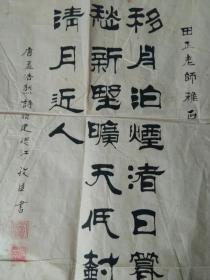 田正老師雅
移舟泊煙渚日暮
愁新野曠天低樹
清月近人
唐孟浩然詩宿建德江 書